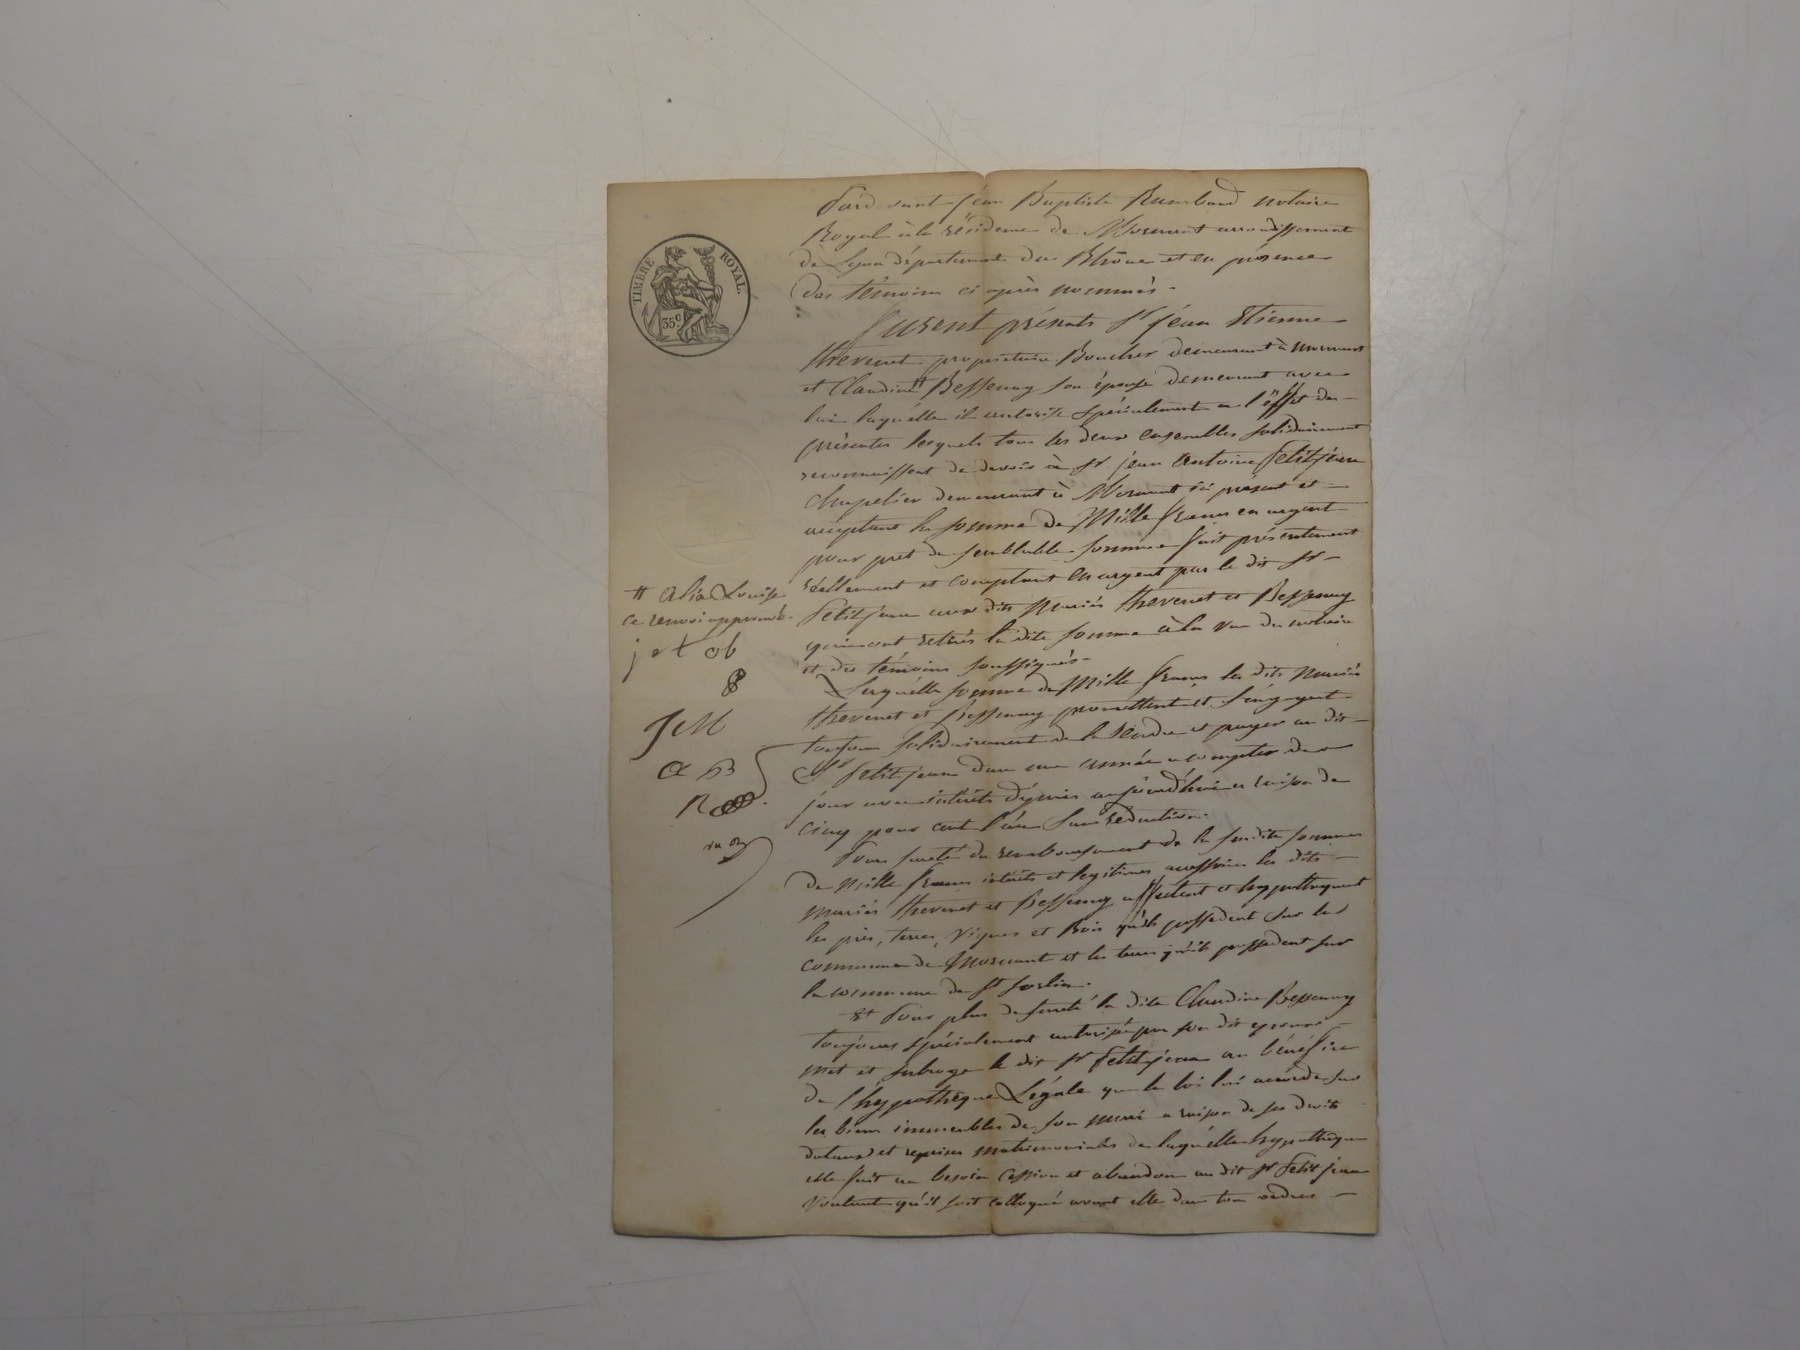 TIMBRE ROYAL.
35c
Pardevant Jean Baptiste Rambaud notaire
Royal à la résidence de Mornant arrondissement
de Lyon département du Rhône et en présence
des témoins ci après nommés.
Furent présents Sr jéan Etienne
thevenet propriétaire Boucher demeurant à mornant
et Claudine # Bessenay son épouse demeurant avec
lui laquelle il autorise spécialement a l'éffet des
présentes lesquels tous les deux ensembles solidairement
reconnaissent de devoir à Sr jean Antoine Petitjéan
Chapelier demeurant à Mornant ici présent et
acceptant la somme de Mille francs en argent
pour pret de semblable somme fait présentement
réellement et comptant en argent par le dit Sr
Petitjean aux dits mariés thevenet et Bessenay
qui ont retirés la dite somme à la vue du notaire
et des témoins soussignés.
# alia Louise
ce renvoi approuvé.
j e t ob
J M
C B
R
Laquélle somme de Mille francs les dits mariés
thevenet et Bessenay promettent et s'éngagent
toujours solidairement de la rendre et payer au dit
Sr Petitjean dans une année a compter de ce
jour avec intérêts dépuis aujourd'hui a raison de
cinq pour cent l'an sans réduction.
Pour sureté du remboursement de la susdite somme
de Mille francs intérêts et légitimes accessoires les dits
mariés thevenet et Bessenay affectent et hypothequent
les prés, terres, vignes et Bois qu'ils possedent sur la
commune de Mornant et les terres qu'ils possedent sur
la commune de St Sorlin.
Et Pour plus de sureté la dite Claudine Bessenay
toujours spécialement autorisée par son dit epoux
met et subroge le dit Sr Petitjean au bénéfice
de l'hypothèque Légale que la loi lui accorde sur
les biens immeubles de son mari a raison de ses droits
dotaux et reprises matrimoniales de laquélle hypotheque
elle fait au besoin cession et abandon au dit Sr Petitjean
Voulant qu'il soit colloqué avant elle dans tous ordres